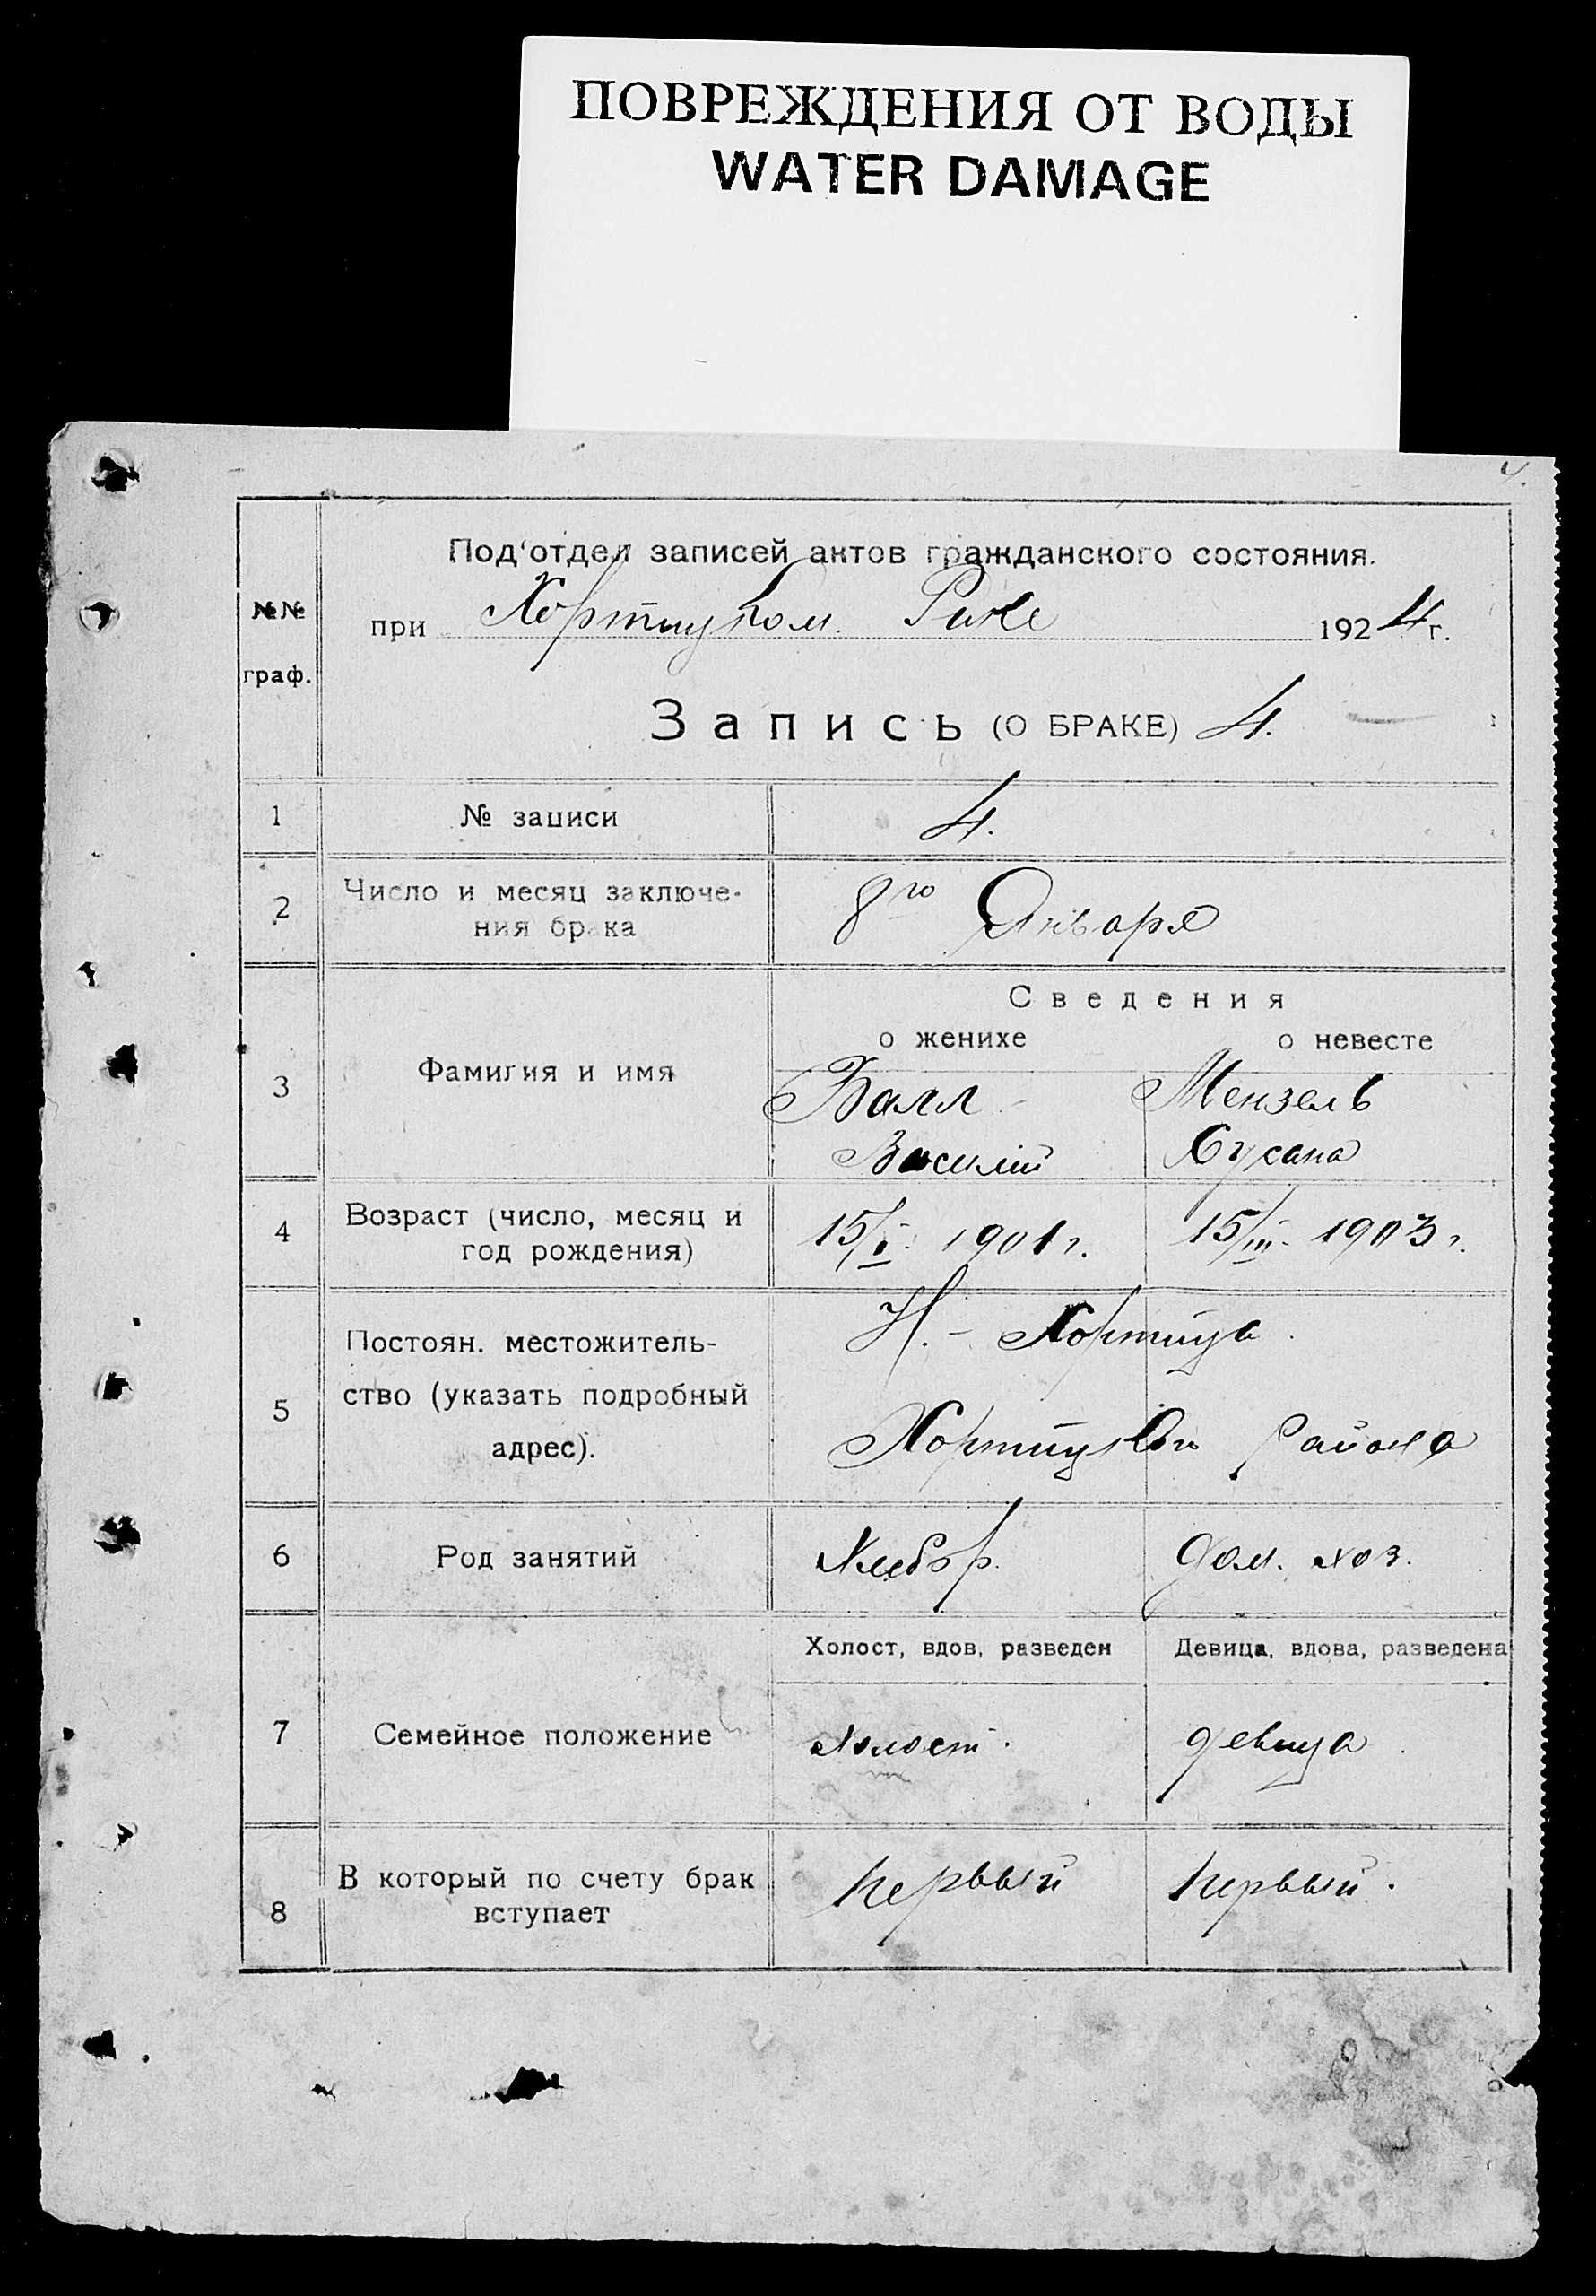 ПОВРЕЖДЕНИЯ ОТ ВОДЫ
WATER DAMAGE
4.
№№ граф.
Под'отдел записей актов гражданского состояния.
при Хортицком. Рике 1924 г.
Запись (О БРАКЕ) 4.
1 № записи 4.
2 Число и месяц заключе-
ния брака 8го Января
Сведения
о женихе о невесте
3 Фамилия и имя Валл Мензель
Василий Сусана
4 Возраст (число, месяц и
год рождения) 15/I. 1901 г. 15/III. 1903 г.
5 Постоян. местожитель-
ство (указать подробный
адрес). Н.- Хортица
Хортицкого Района
6 Род занятий Хлебор. Дом. хоз.
Холост, вдов, разведен Девица, вдова, разведена
7 Семейное положение Холост. девица.
8 В который по счету брак
вступает первый первый.